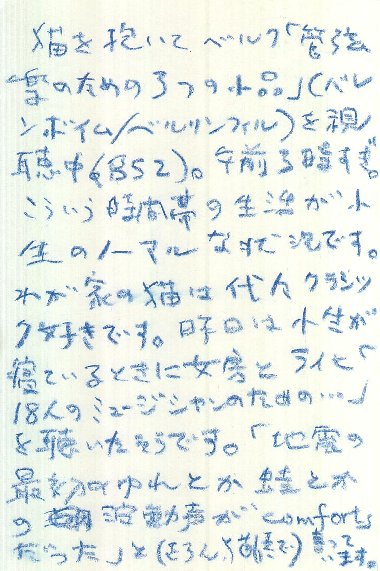 猫を抱いてベルク「管弦
楽のための3つの小品」(バレ
ンボイム/ベルリンフィル)を視
聴中(BS2)。午前3時すぎ。
こういう時間帯の生活が小
生のノーマルな状況です。
わが家の猫は代々クラシッ
ク好きです。昨日は小生が
寝ているときに女房とライヒ「
18人のミュージシャンのための…」
を聴いたそうです。「地震の
最初のゆれとか蛙とか
の 波動声がcomforts
だった」と(もちろん猫語で)言って
います。